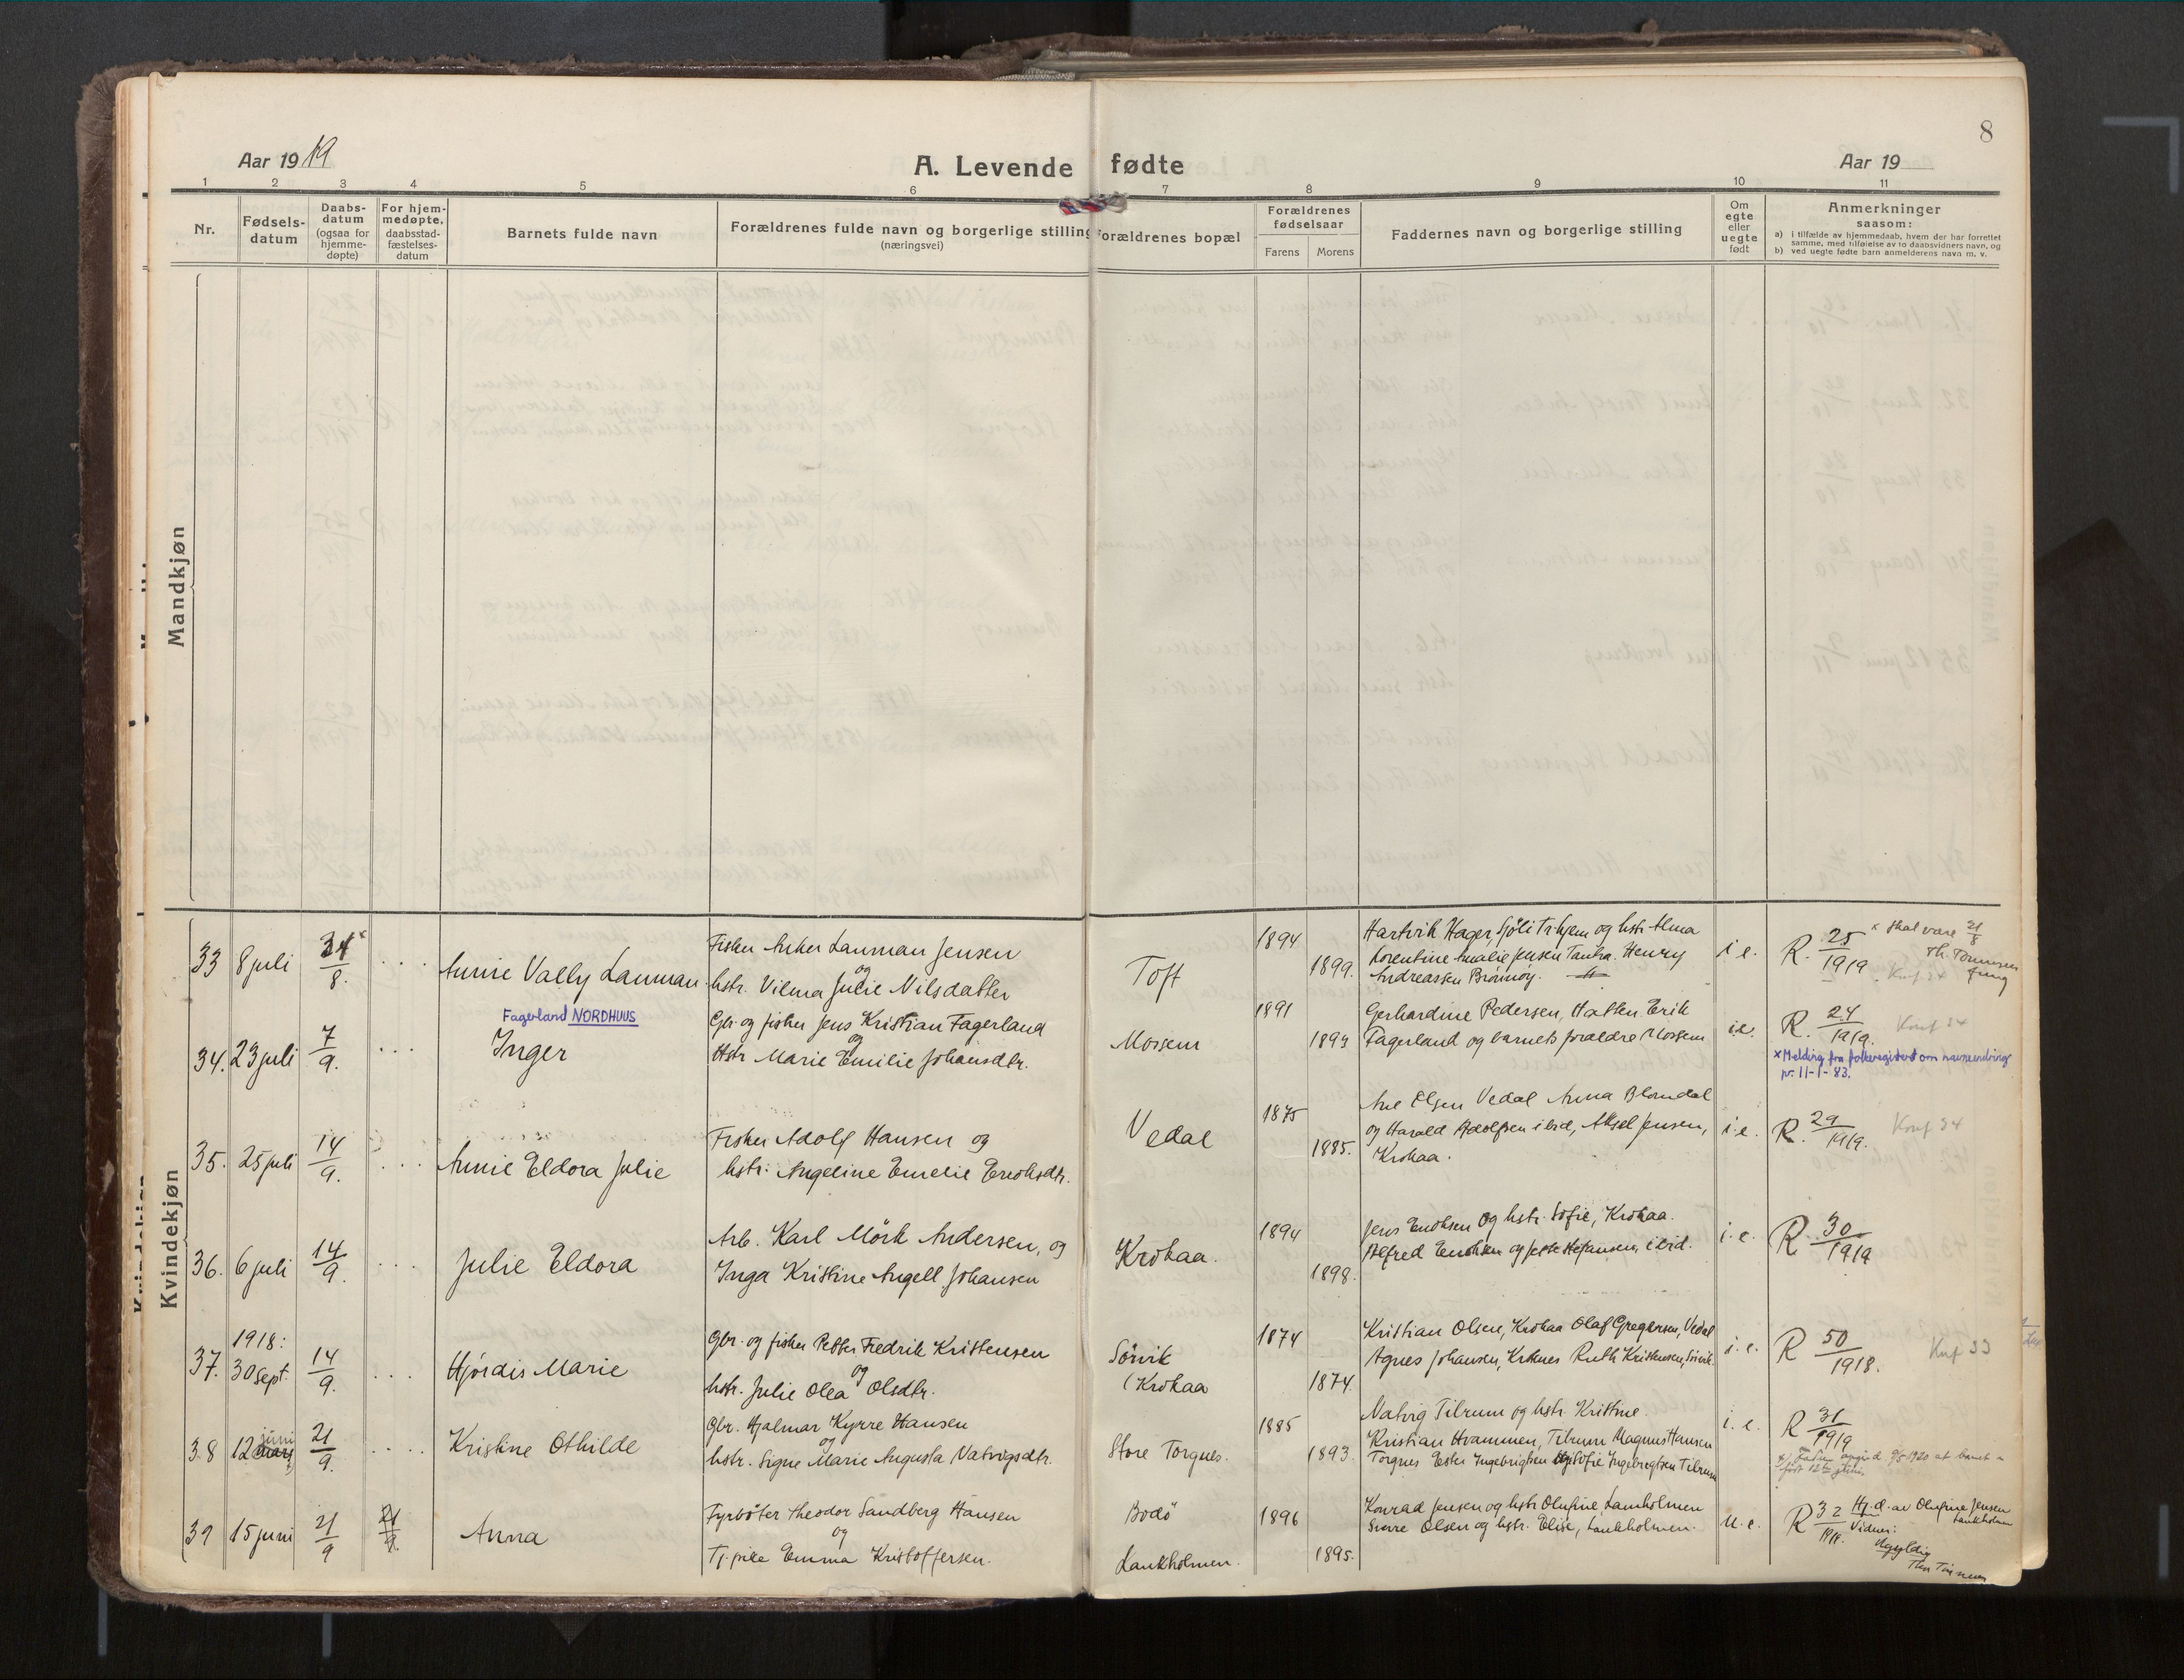 8
Aar 1919
A. Levende fødte
Aar 19
1 2 3 4 5 6 7 8 9 10 11
Nr.
Fødsels-
datum
Daabs-
datum
(ogsaa for
hjemme-
døpte)
For hjem-
medøpte,
daabsstad-
fæstelses-
datum
Barnets fulde navn
Forældrenes fulde navn og borgerlige stilling
(næringsvei)
Forældrenes bopæl
Forældrenes
fødselsaar
Farens Morens
Faddernes navn og borgerlige stilling
Om
egte
eller
uegte
født
Anmerkninger
saasom:
a) i tilfælde av hjemmedaab, hvem der har forrettet
samme, med tilføielse av to daabsvidners navn, og
b) ved uegte fødte barn anmelderens navn m. v.
Mandkjøn
Kvindekjøn
33 8 juli 8.
Annie Vally Lanman
Fisker Anker Lanman Jensen
og
hstr. Vilma Julie Nilsdatter
Toft
1894
1899.
Hartvik Hager, og hstr Alma
Lorentine Amalie Jensen Henry
Andreassen Brønnøy.
i.e.
R. 25/1919
* skal være 21/8
Th. Tønnesen
fung
Konf 34
34. 23 juli 7/9.
Fagerland NORDHUUS
Inger
Gbr. og fisker Jens Kristian Fagerland
og
Hstr Marie Emilie Johansdtr.
Mossem
1891
1893
Gerhardine Pedersen, Hatten Erik
Fagerland og barnets forældre Mossem
i.e.
R. 24/1919.
Konf 34
x Melding fra folkeregisteret om navneendring
pr. 11-1-83.
35. 25 juli 14/9.
Annie Eldora Julie
Fisker Adolf Hansen og
hstr. Angeline Emelie
Vedal
1875
1885.
Ane Olsen Vedal Anna Blomdal
og Harald Adolfsen ibid, Aksel Jensen,
Krokaa.
i.e.
R. 29/1919.
Konf 34
36. 6 juli 14/9.
Julie Eldora
Arb. Karl Mörk Andersen, og
Inga Kristine Angell Johansen
Krokaa.
1894
1898.
Jens Enoksen og hstr. Sofie, Krokaa.
Alfred Enoksen og ibid.
i.e.
R. 30/1919
37. 1918:
30 sept. 14/9.
Hjördis Marie
Gbr. og fisker Petter Fredrik Kristensen
og
hstr. Julie Olea Olsdtr.
Sörvik
(Krokaa
1874
1874.
Kristian Olsen, Krokaa Olaf Gregersen, Vedal
Agnes Johansen, Ruth Kristensen, Sörvik.
i.e.
R 50/1918.
Konf 33
38 12 juni 21/9.
Kristine Othilde
Gbr. Hjalmar Kyrre Hansen
og
hstr. Signe Marie Augusta Natvigsdtr.
Store Torgnes.
1885
1893.
Natvig Tilrum og hstr. Kristine.
Kristian Hvammen, Tilrum Magnus Hansen
Torgnes Ester Ingebrigtsen og Sofie Ingebregtsen Tilrum
i.e.
R 31/1919
x) Fader opgir d 9/5 1920 at barnet er
født 12te juni
39 15 juni 21/9 21/9.
Anna
Fyrböter Theodor Sandberg Hansen
og
Tj. pike Emma Kristoffersen.
Bodö
Lankholmen.
1896
1895.
Konrad Jensen og hstr Olufine Lankholmen
Sverre Olsen og hstr. Elise, Lankholmen.
u.e.
R 32/1919.
Hj.d. av Olufine Jensen
Lankholmen
Vidner:
Ugyldig
Thor Tönnesen